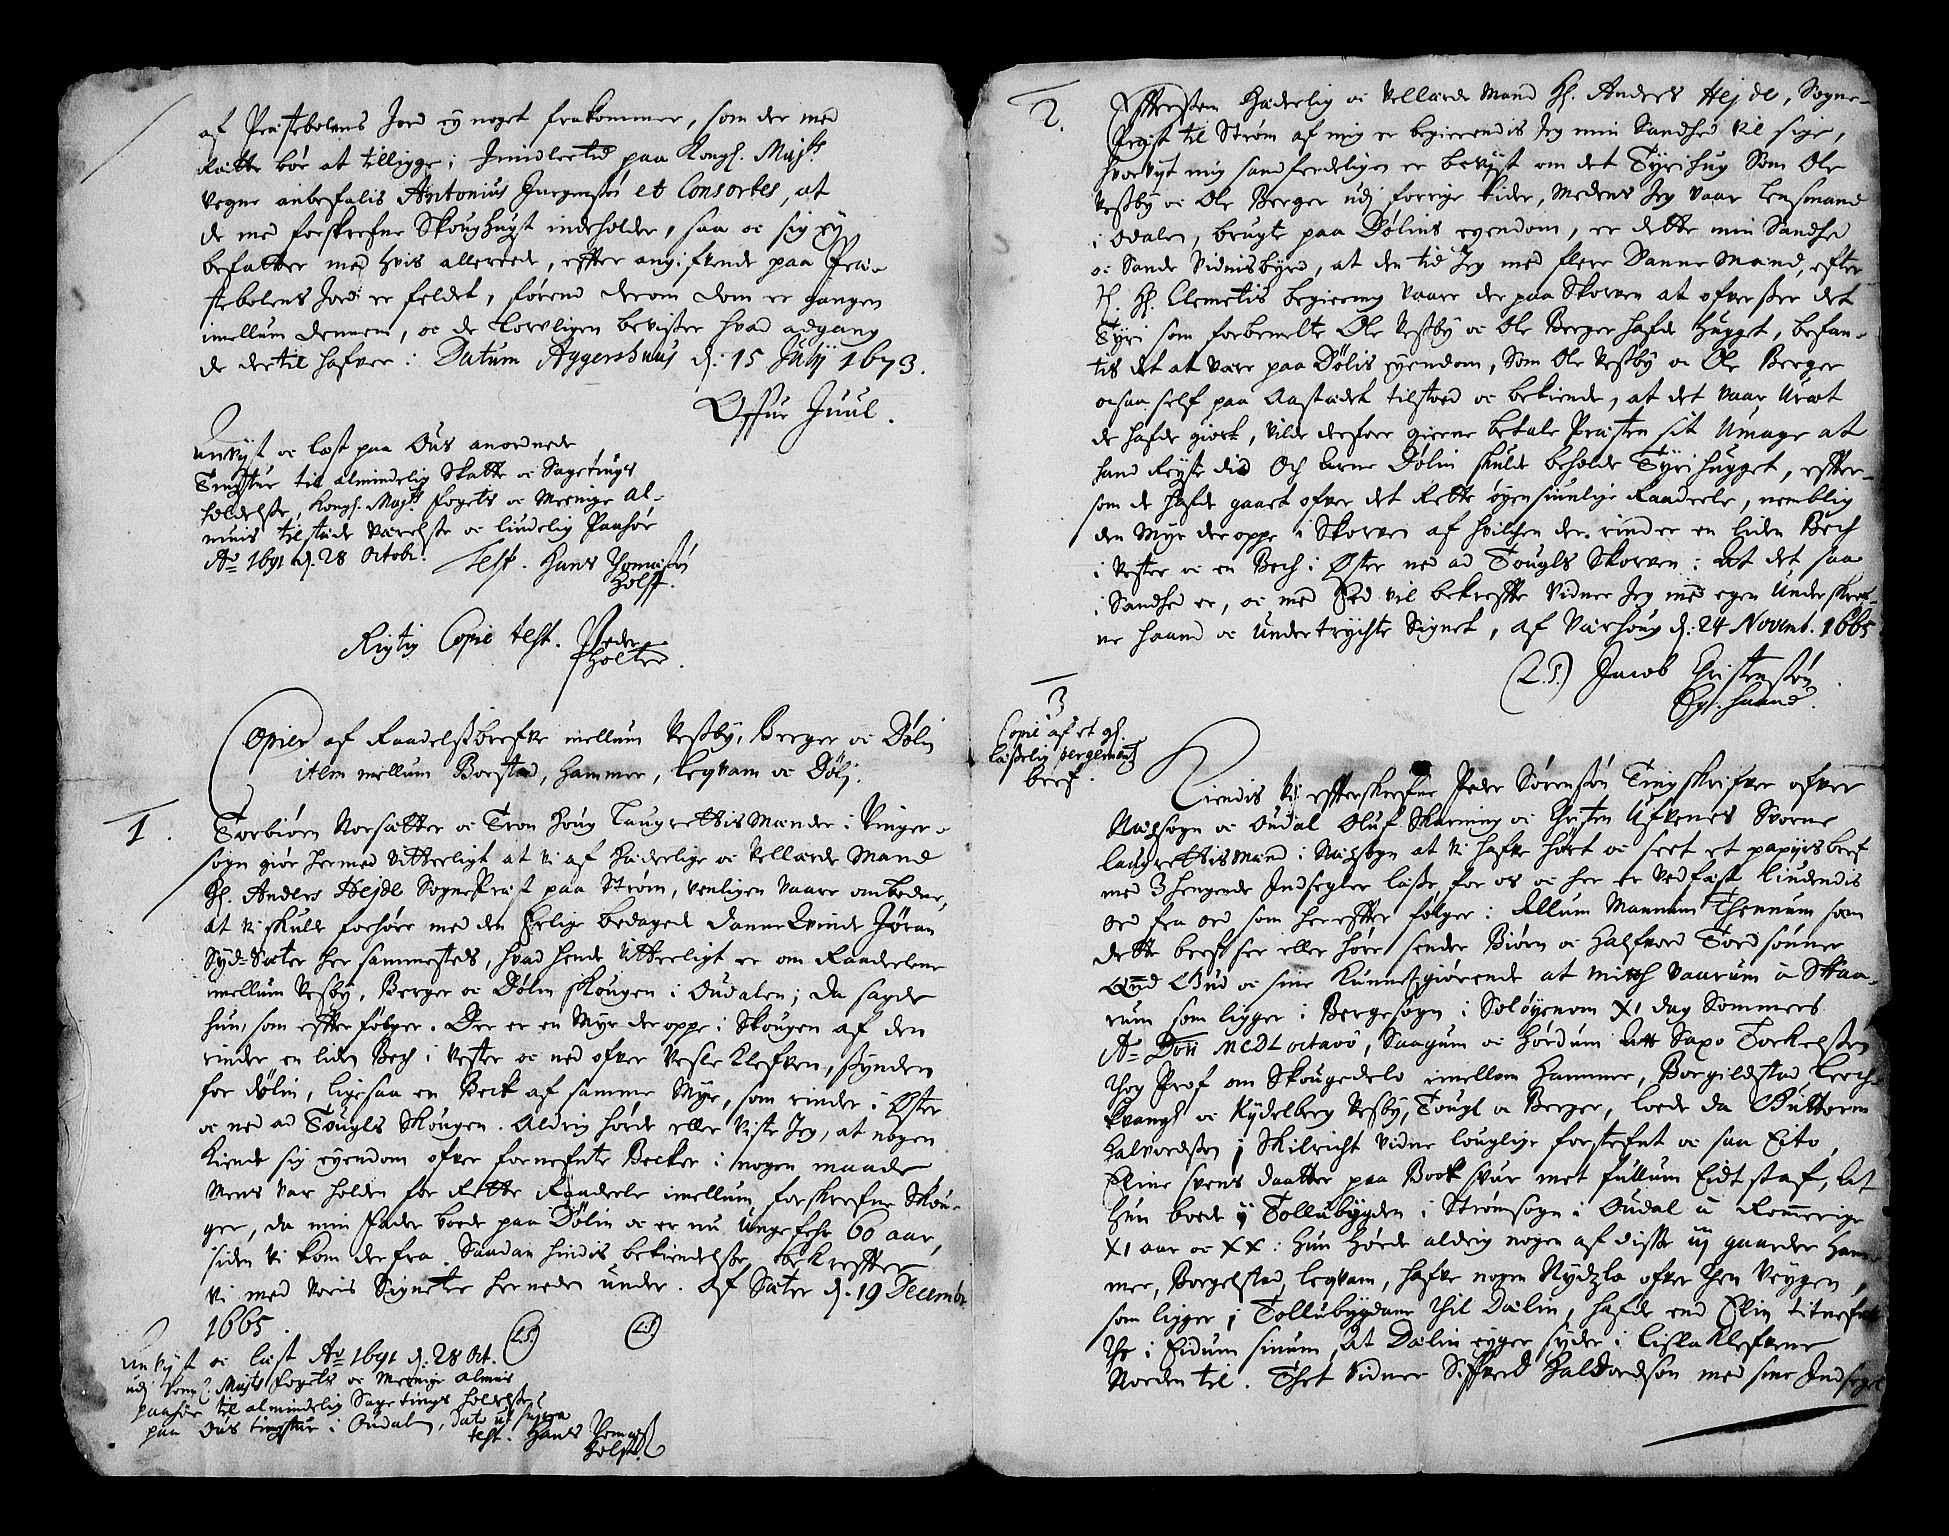 af Præstebolens Jord ey noget frakommer, som der med
Rætte bør at tilligge; Imidlertid paa Kongl. Maj:ts
vegne anbefalis Antonius Jurgensøn et Consortes, at
de med forskrefne Skoughugst indeholder, saa oc sig ey
befatter med hvis allereede, effter angifvende paa Præ-
stebolens Jord er feldet, førend derom dom er gangen
imellum dennem, oc de Lovligen bevisser hvad adgang
de dertil hafver: Datum Aggershuus d: 15 Julij 1673.
Offue Juul.
Anvist oc læst paa Ous anordnede
Tingstue til almindelig Skatte oc Sagetings
holdelsse, Kongl. Maj:ts fogets oc Meenige Al-
muis tilstede værelsse oc liudelig Paahør
Ao 1691 d. 28 Octobr.
Test. Hans Thomæsøn
Holst.
Rigtig Copie test. Peder
Holter.
Copier af Raadelssbrefve imellum Vessby, Berger oc Døli
item mellum Borstad, Hammer, Leqvam oc Døli.
1.
Torbiørn Norsætter oc Tron Houg Laugrettis Mænder i Vinger-
sogn giør hermed vitterligt at vi af Hæderlige oc Vellærde Mand
Hr. Anders Hejde SognePræst paa Strøm, venligen vaare ombedne,
at vi skulde forhøre med den Erlige bedagede danneqvinde Jøran
Syd-Sæter her sammesteds, hvad hende vitterligt er om Raadelene
imellum Vesby, Berger oc Dølin skougen i Oudalen; da sagde
hun, som effter følger. Der er en Myr der oppe i Skougen af den
rinder en liden Bech i Vester oc ned ofver Vesle Klefven, synden
for Dølin, ligesaa en Beck af samme Myr, som rinder i Øster
oc ned ad Tougls Skougen. Aldrig hørde eller viste Jeg, at nogen
kiende sig eyendom ofver fornefnte Becker i nogen maade
Mens var holden for Rette Raadeele imellum forskrefne Skou-
ger, da min Fader boede paa Dølin oc er nu ungefehr 60 aar,
siden vi kom derfra. Saadan hindis bekiendelsse, bekreffter
vi med voris Signeter herneden under. Af Sæter d. 19 Decembr
1665.
(L.S.) (L.S.)
Anvist oc læst Ao 1691 d: 28 Oct.
udj Kongl. Majts fogets oc Meenige Almuis
paahør til almindelig Sagetings holdelsse
paa Ous tingstue i Oudalen, dato ut supra
test. Hans Thomæsøn
Holst.
2.
Efftersom Hæderlig oc Vellærde Mand Hr. Anders Hejde, Sogne-
Præst til Strøm af mig er begierendis Jeg min Sandhed vil sige,
hvorvyt mig sandferdeligen er bevist om det Tyrihug Som Ole
Vessby oc Ole Berger udj forrige tider, medens Jeg vaar Lensmand
i Odalen, brugte paa Dølins eyendom, er dette min Sandhed
oc Sande Vidnisbyrd, at den tid Jeg med flere Danne Mænd, efter
Sl. Hr. Clemetis begiering vaare der paa Skoven at ofversee det
Tyri som forbemelte Ole Vessby oc Ole Berger hafde Hugget, befan-
tis det at være paa Dølis eyendom, Som Ole Vessby oc Ole Berger
ocsaa self paa Aastædet tilstoed oc bekiende, at det vaar Uræt
de hafde giort, vilde derfore gierne betale Præsten sit Umage at
hand Reyste did Och Arne Dølin skulde beholde Tyrihugget, effter-
som de hafde gaaet ofver det Rette øyensiunlige Raadeele, nemblig
den Myr der oppe i Skoven af hvilchen der rinder en liden Bech
i Vester oc en Bech i Øster ned ad Tougls Skoven: At det saa
i Sandhed er, oc med Eed vil bekreffte vidner Jeg med egen Underskref-
ne haand oc undertrychte Signet, af Værhoug d: 24 Novemb. 1665
(L.S.) Jacob Christenssøn
Egl. haand.
3
Copie af et gl.
læsselig Pergements
bref.
Kiendis vi effterskrefne Peder Sørenssøn Tingskrifver ofver
Næssogn oc Oudal Oluf Skarning oc Christen Ufvenes Svorne
laugrettismænd i Næssogn at vi hafve hørt oc seet et papyrsbref
med 3 hengende Indsegler læsse for os oc her er vedfæst liudendis
ord fra ord som hereffter følger: Allum Mannum Thennum som
dette breff see eller høre sender Biørn oc Halfvord Tordsønner
Qved Gud oc sine kunnesgiørende at mitth vaarum a Skaa-
rum som ligger i Bergesogn i Soløyenom XI dag Sommers
Ao Doñ MCDL octavo, Saagum oc hørdum att Saxo Torkelssøn
thog Prof om Skougedele imellom Hammer, Borgildstad, Lerch-
kvangh oc Kydelberg Vesby, Tougl oc Berger, loede da Guttorm
Halvordssøn j Skilricht vidne louglige forstefnt oc saa Eito,
Eline Svens daatter paa Book svur met fullum Eidt staf, At
hun boede ij Tollubygden i Strømsogn i Oudal a Romerige
XI aar oc XX: hun hørde aldrig nogen af disse iij gaarder Ham-
mer, Borgelstad, Leqvam, hafve nogen Nydzla ofver then Veygen,
som ligger j Tollubygdene thil Dælin, hafde end Elin titnefn-
the i Eidum sinum, At Dælin eyger syder i Lislaklefvene
Norden til. Thet vidner Siffverd Haldvordsson med sine Indsegel